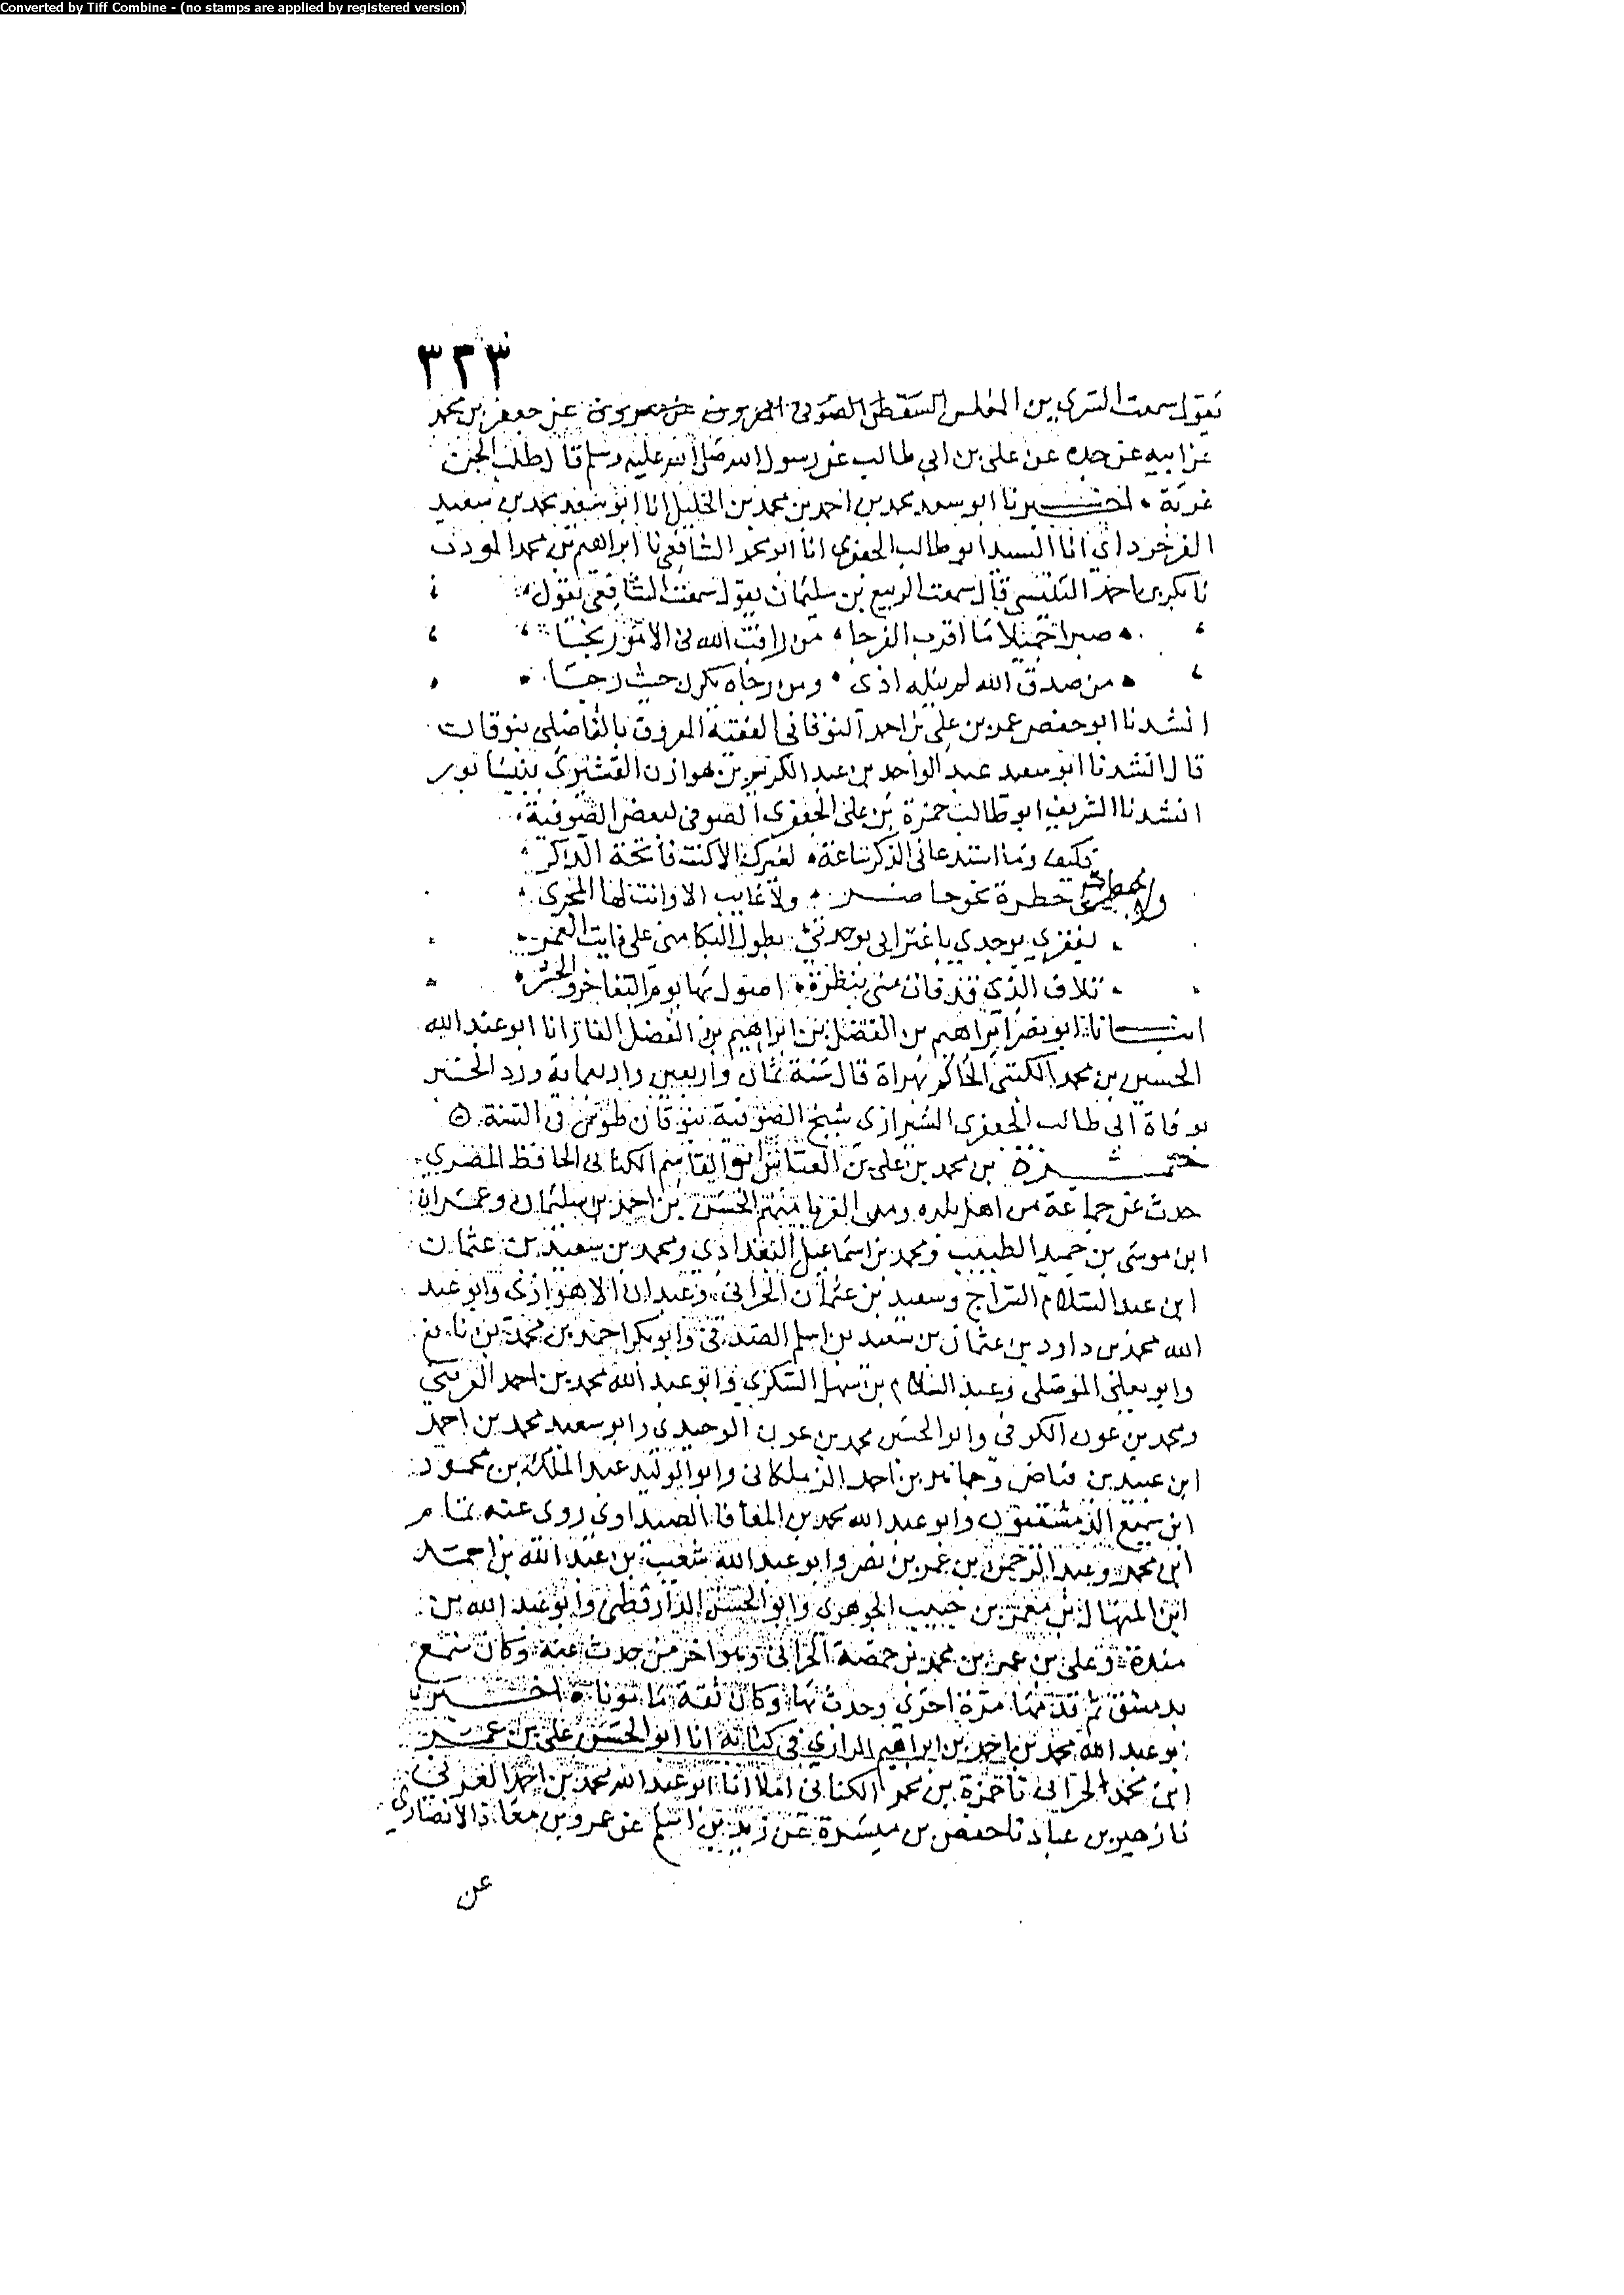 Converted by Tiff Combine - (no stamps are applied by registered version)
٣٢٣
يقول سمعت السري بن المغلس السقطي الصوفي عن معروف عن جعفر بن محمد
عن ابيه عن جده عن علي بن ابي طالب عن رسول الله صلى الله عليه وسلم قال طلب الحق
غربة اخبرنا ابو سعد محمد بن احمد بن محمد بن الخليل انا ابو سعد محمد بن سعيد
الفرخرداي انا السيد ابو طالب الجعفري انا ابو محمد الشافعي نا ابراهيم بن محمد المودب
نا بكر بن احمد التنيسي قال سمعت الربيع بن سليمان يقول سمعت الشافعي يقول
صبرا جميلا ما اقرب الفرجا من راقب الله في الامور نجا
من صدق الله لم ينله اذى ومن رجاه يكون حيث رجا
انشدنا ابو حفص عمر بن علي بن احمد النوقاني الفقيه المعروف بالفاضلي بنوقان
قال انشدنا ابو سعيد عبد الواحد بن عبد الكريم بن هوازن القشيري بنيسابور
انشدنا الشريف ابو طالب حمزة بن علي الجعفري الصوفي لبعض الصوفية
فكيف وما استدعاني الذكر ساعة لغيرك الا كنت فاتحة الذكر
ولا خطرة نحو حاضر ولا غايب الا وانت لها المجري
بفقري بوجدي باغترابي بوحدتي بطول البكا مني على فايت العمر
تلاف الذي قد فات مني بنظرة اصول بها يوم التفاخر والحشر
انبانا ابو نصر ابراهيم بن الفضل بن ابراهيم بن الفضل الفار انا ابو عبد الله
الحسين بن محمد الكتبي الحاكم بهراة قال سنة ثمان واربعين واربعماية ورد الخبر
بوفاة ابي طالب الجعفري الشيرازي شيخ الصوفية بنوقان طوس في السنة
حمزة بن محمد بن علي بن العباس ابو القاسم الكناني الحافظ المصري
حدث عن جماعة من اهل بلده ومن الغربا منهم الحسن بن احمد بن سليمان وعمران
ابن موسى بن حميد الطبيب ومحمد بن اسماعيل البغدادي ومحمد بن سعيد بن عثمان
ابن عبد السلام السراج وسعيد بن عثمان الحراني وعبدان الاهوازي وابو عبد
الله محمد بن داود بن عثمان بن سعيد بن اسلم الصدفي وابو بكر احمد بن محمد بن نافع
وابو يعلى الموصلي وعبد السلام بن سهل السكري وابو عبد الله محمد بن احمد العريني
ومحمد بن عون الكوفي وابو الحسن محمد بن عون الوحيدي وابو سعيد محمد بن احمد
ابن عبيد بن فياض وجماهر بن احمد الزملكاني وابو الوليد عبد الملك بن محمود
ابن سميع الدمشقيون وابو عبد الله محمد بن المعافا الصيداوي روى عنه تمام
ابن محمد وعبد الرحمن بن عمر بن نصر وابو عبد الله شعيب بن عبد الله بن احمد
ابن المنهال بن معمر بن حبيب الجوهري وابو الحسن الدارقطني وابو عبد الله بن
مندة وعلي بن عمر بن محمد بن حمصة الحراني وهو اخر من حدث عنه وكان سمع
بدمشق ثم قدمها مرة اخرى وحدث بها وكان ثقة مامونا اخبرنا
ابو عبد الله محمد بن احمد بن ابراهيم الرازي في كتابه انا ابو الحسن علي بن عمر
ابن محمد الحراني نا حمزة بن محمد الكناني املا انا ابو عبد الله محمد بن احمد العريني
نا زهير بن عباد نا حفص بن ميسرة عن زيد بن اسلم عن عمرو بن معاذ الانصاري
عن